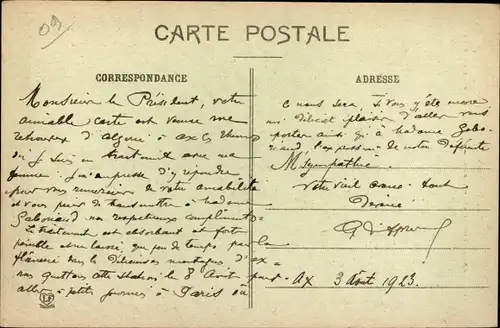 09
CARTE POSTALE
CORRESPONDANCE
ADRESSE
Monsieur le Président, votre
aimable carte est venue me
retrouver d'Algérie à Ax les Thermes
où je suis en traitement avec ma
femme. je m'empresse d'y répondre
pour vous remercier de votre amabilité
et vous prier de transmettre à Madame
nos respectueux compliments
Le traitement est absorbant et fort
pénible et ne laisse que peu de temps pour la
flânerie dans les délicieuses montagnes d'Ax
nous quittons cette station le 8 Août pour
aller petites journées à Paris où
LF
nous sera, si vous y ête encore
plaisir d'aller vous
porter ainsi qu'à Madame
l'expression de notre déférente
sympathie
Votre vieil tout
Dévoué
Ax 3 Août 1923.